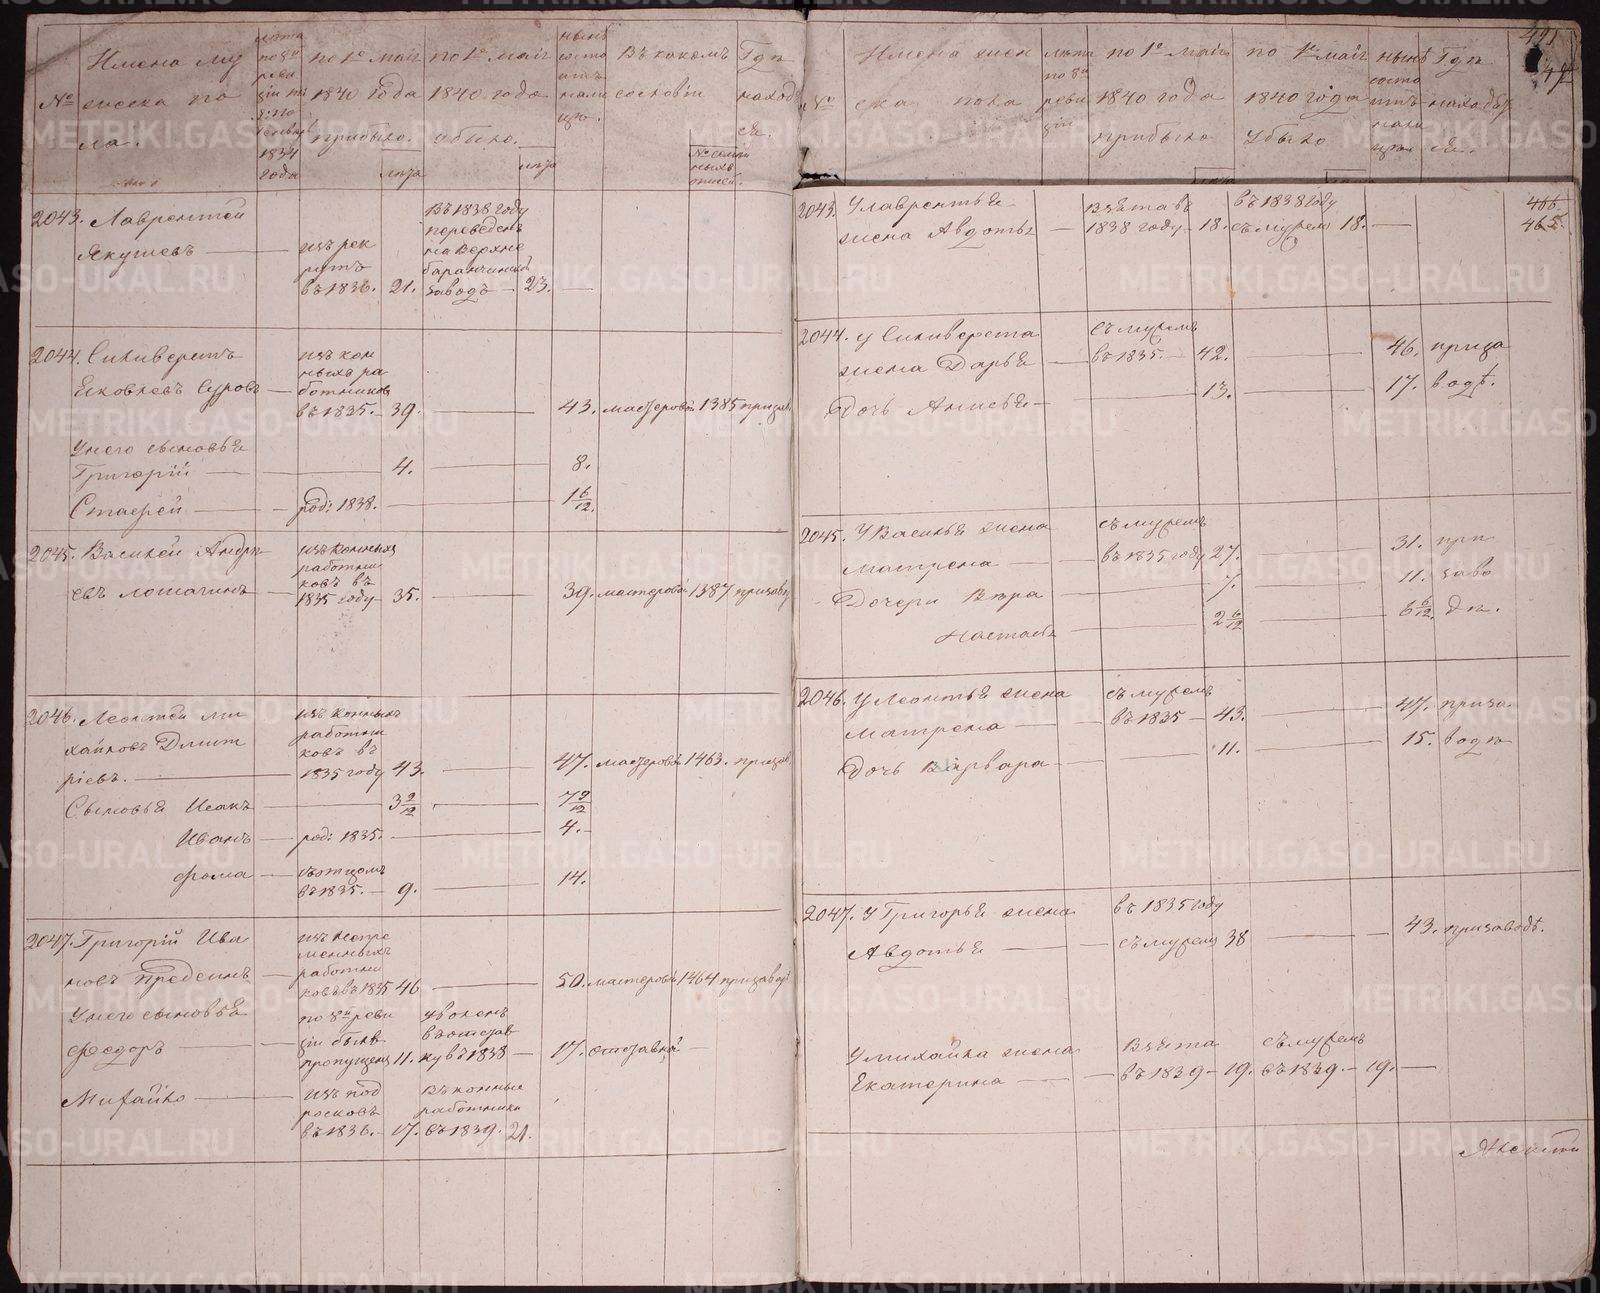 №
Имена му
жеска по
ла.
лета
по 8й
реви
1834
года
по 1е майя
1840 года
прибыло.
лета
по 1е майя
1840 года
убыло.
лета
ныне
состо
итъ
нали
цо.
Въ какомъ
сословіи
№ съим
ныхъ
описей.
Где
наход
ся.
2043. Лаврентей
Якушевъ
изъ рек
рутъ
въ 1836. 21.
Въ 1838 году
переведенъ
на Верхне
баранчинский
заводъ 23.
2044. Силиверстъ
Яковлевъ Суровъ
изъ кон
ныхъ ра
ботниковъ
въ 1835. 39.
43. мастеровой 1385 призав.
У него сыновья
Григорій 4. 8.
Стафей род: 1838. 1 6/12.
2045. Василей Андре
евъ Лошагинъ
изъ конныхъ
работни
ковъ въ
1835 году 35.
39. мастеровой 1387 призавод
2046. Леонтей Ми
хайловъ Дмит
ріевъ.
изъ конныхъ
работни
ковъ въ
1835 году 43.
47. мастеровой 1463. призав
Сыновья Исакъ 3 9/12 7 9/12
Иванъ род: 1835. 4.
Фома съ отцомъ
въ 1835. 9. 14.
2047. Григорій Ива
новъ Преденнъ
изъ непре
менныхъ
работни
ковъ въ 1835 46.
50. мастеровой 1464 призавод
У него сыновья
Федоръ
по 8й реви
зіи былъ
пропущенъ 11.
уволенъ
въ отстав
ку въ 1838
17. отставной
Михайло
изъ под
росковъ
въ 1836. 17.
Въ конные
работники
въ 1839. 21.
№
Имена жен
ска пола
лета
по 8й
реви
зіи
по 1е майя
1840 года
прибыло
по 1е майя
1840 года
убыло
ныне
состо
итъ
нали
цо
Где
находят
ся.
2043. У Лаврентья
жена Авдотья
Взята въ
1838 году 18.
въ 1838 году
съ мужем 18.
466.
465.
2044. у Силиверста
жена Дарья
съ мужемъ
въ 1835. 42. 46. приза
Дочь Анисья 13. 17. водѣ.
2045. У Василья жена
Матрена
съ мужемъ
въ 1835 году 27. 31. при
Дочери Вера 7. 11. заво
Настасья 2 6/12 6 6/12. де.
2046. У Леонтья жена
Матрена
съ мужемъ
въ 1835 43. 47. приза
Дочь Варвара 11. 15. водѣ
2047. У Григорья жена
Авдотья
въ 1835 году
съ мужемъ 38 43. призаводѣ.
У Михайла жена
Екатерина
Взята
въ 1839 19.
съ мужемъ
въ 1839. 19.
METRIKI.GASO-URAL.RU